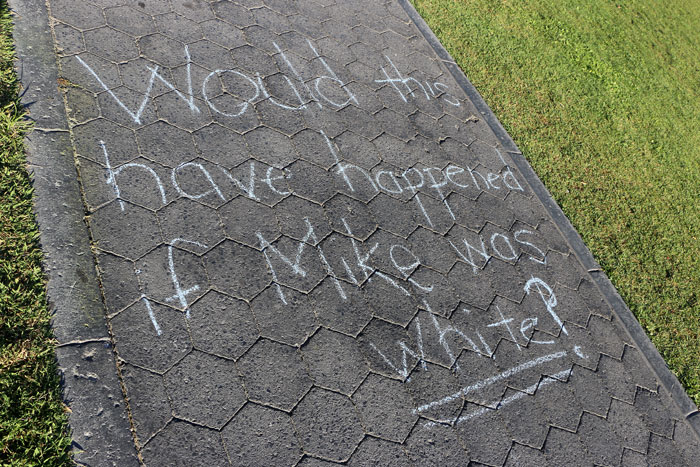 Would this
have happened
if Mike was
white?